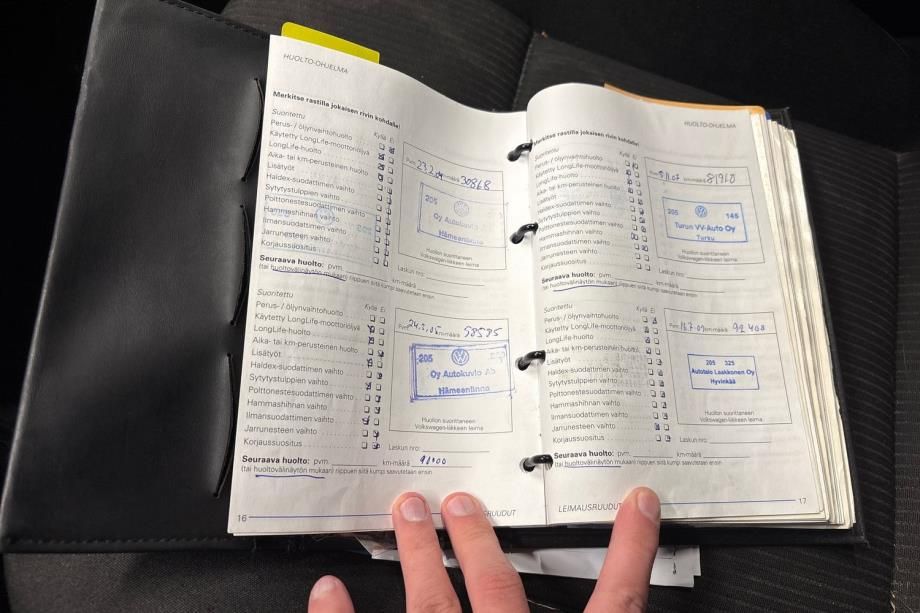 HUOLTO-OHJELMA
Merkitse rastilla jokaisen rivin kohdalle!
Suoritettu Kyllä Ei
Perus- / öljynvaihtohuolto
Käytetty LongLife-moottoriöljyä
LongLife-huolto
Aika- tai km-perusteinen huolto
Lisätyöt
Haldex-suodattimen vaihto
Sytytystulppien vaihto
Polttonestesuodattimen vaihto
Hammashihnan vaihto
Ilmansuodattimen vaihto
Jarrunesteen vaihto
Korjaussuositus
Pvm km-määrä 30868
205
Oy Autokuvio
Hämeenlinna
Huollon suorittaneen
Volkswagen-liikkeen leima
Laskun nro:
Seuraava huolto: pvm. km-määrä
(tai huoltovälinäytön mukaan) riippuen siitä kump saavutetaan ensin
Suoritettu Kyllä Ei
Perus- / öljynvaihtohuolto
Käytetty LongLife-moottoriöljyä
LongLife-huolto
Aika- tai km-perusteinen huolto
Lisätyöt
Haldex-suodattimen vaihto
Sytytystulppien vaihto
Polttonestesuodattimen vaihto
Hammashihnan vaihto
Ilmansuodattimen vaihto
Jarrunesteen vaihto
Korjaussuositus
Pvm km-määrä 58585
205
Oy Autokuvio Ab
Hämeenlinna
Huollon suorittaneen
Volkswagen-liikkeen leima
Laskun nro:
Seuraava huolto: pvm. km-määrä
(tai huoltovälinäytön mukaan) riippuen siitä kump saavutetaan ensin
16
HUOLTO-OHJELMA
Merkitse rastilla jokaisen rivin kohdalle!
Suoritettu Kyllä Ei
Perus- / öljynvaihtohuolto
Käytetty LongLife-moottoriöljyä
LongLife-huolto
Aika- tai km-perusteinen huolto
Lisätyöt
Haldex-suodattimen vaihto
Sytytystulppien vaihto
Polttonestesuodattimen vaihto
Hammashihnan vaihto
Ilmansuodattimen vaihto
Jarrunesteen vaihto
Korjaussuositus
Pvm km-määrä
205 145
Turun VV-Auto Oy
Turku
Huollon suorittaneen
Volkswagen-liikkeen leima
Laskun nro:
Seuraava huolto: pvm. km-määrä
(tai huoltovälinäytön mukaan) riippuen siitä kump saavutetaan ensin
Suoritettu Kyllä Ei
Perus- / öljynvaihtohuolto
Käytetty LongLife-moottoriöljyä
LongLife-huolto
Aika- tai km-perusteinen huolto
Lisätyöt
Haldex-suodattimen vaihto
Sytytystulppien vaihto
Polttonestesuodattimen vaihto
Hammashihnan vaihto
Ilmansuodattimen vaihto
Jarrunesteen vaihto
Korjaussuositus
Pvm km-määrä
205 325
Autotalo Laakkonen Oy
Hyvinkää
Huollon suorittaneen
Volkswagen-liikkeen leima
Laskun nro:
Seuraava huolto: pvm. km-määrä
(tai huoltovälinäytön mukaan) riippuen siitä kump saavutetaan ensin
LEIMAUSRUUDUT 17